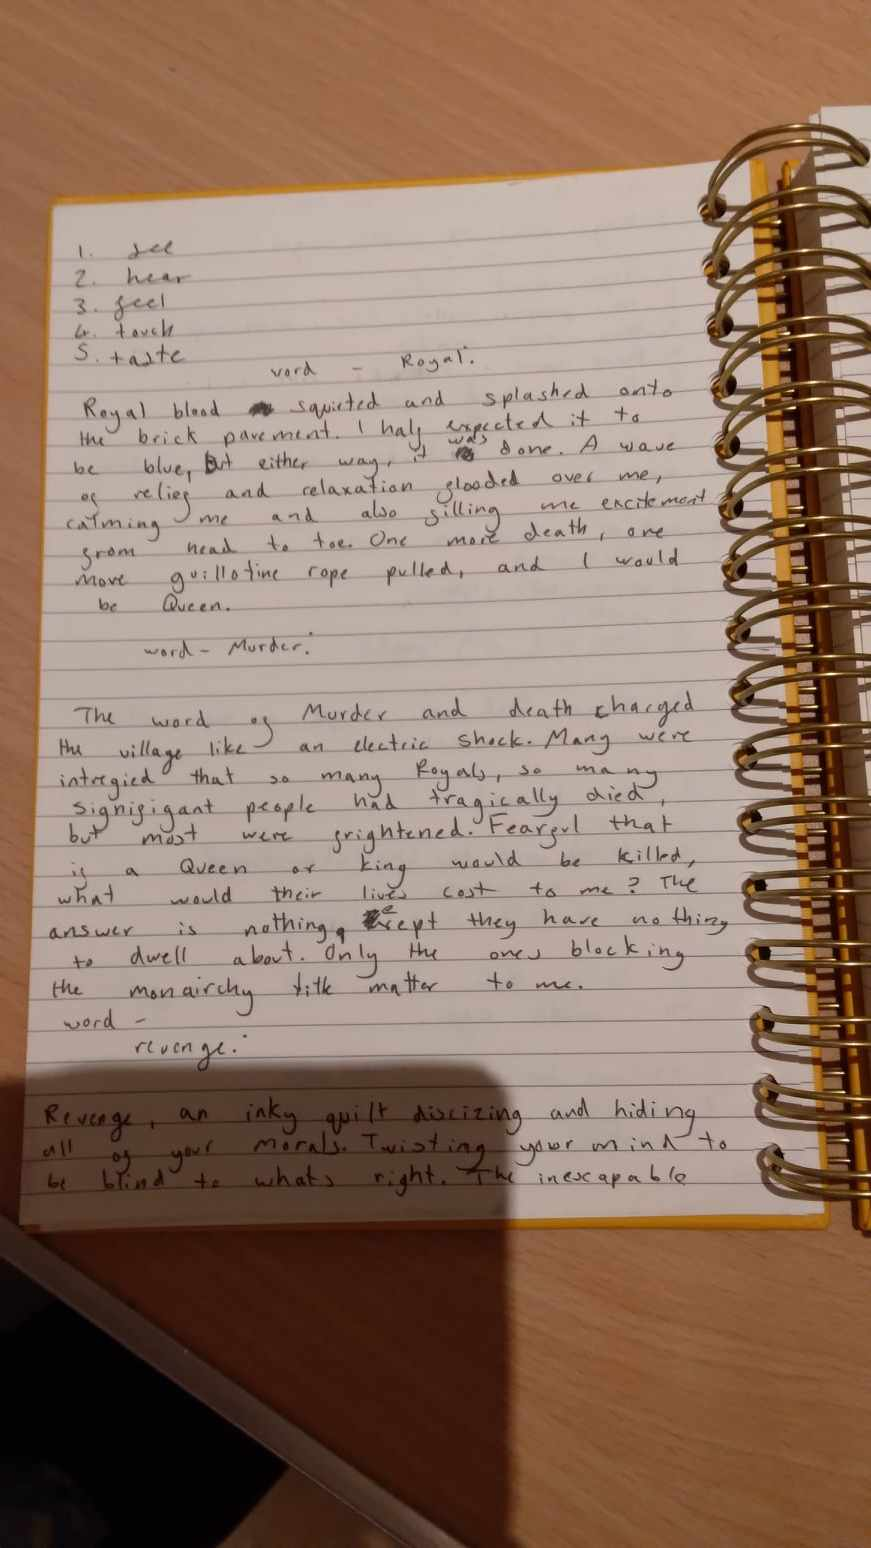 1. see
2. hear
3. feel
4. touch
5. taste
word - Royal:
Royal blood squirted and splashed onto
the brick pavement. I half expected it to
be blue, but either way, it was done. A wave
of relief and relaxation flooded over me,
calming me and also filling me excitement
from head to toe. One more death, one
more guillotine rope pulled, and I would
be Queen.
word - Murder:
The word of Murder and death charged
the village like an electric shock. Many were
intregied that so many Royals, so many
signifigant people had tragically died,
but most were frightened. Fearful that
if a Queen or king would be killed,
what would their lives cost to me? The
answer is nothing, except they have nothing
to dwell about. Only the ones blocking
the monairchy title matter to me.
word -
revenge:
Revenge, an inky quilt discizing and hiding
all of your morals. Twisting your mind to
be blind to whats right. The inescapable